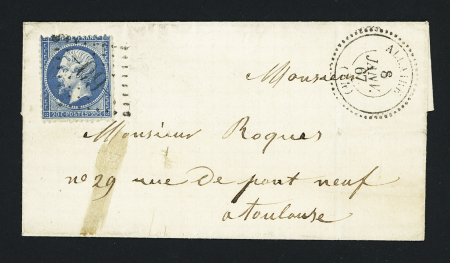 8
JANV.
67
Monsieur
20 C POSTES 20 C
Monsieur Roques
no 29 rue de pont neuf
a toulouse